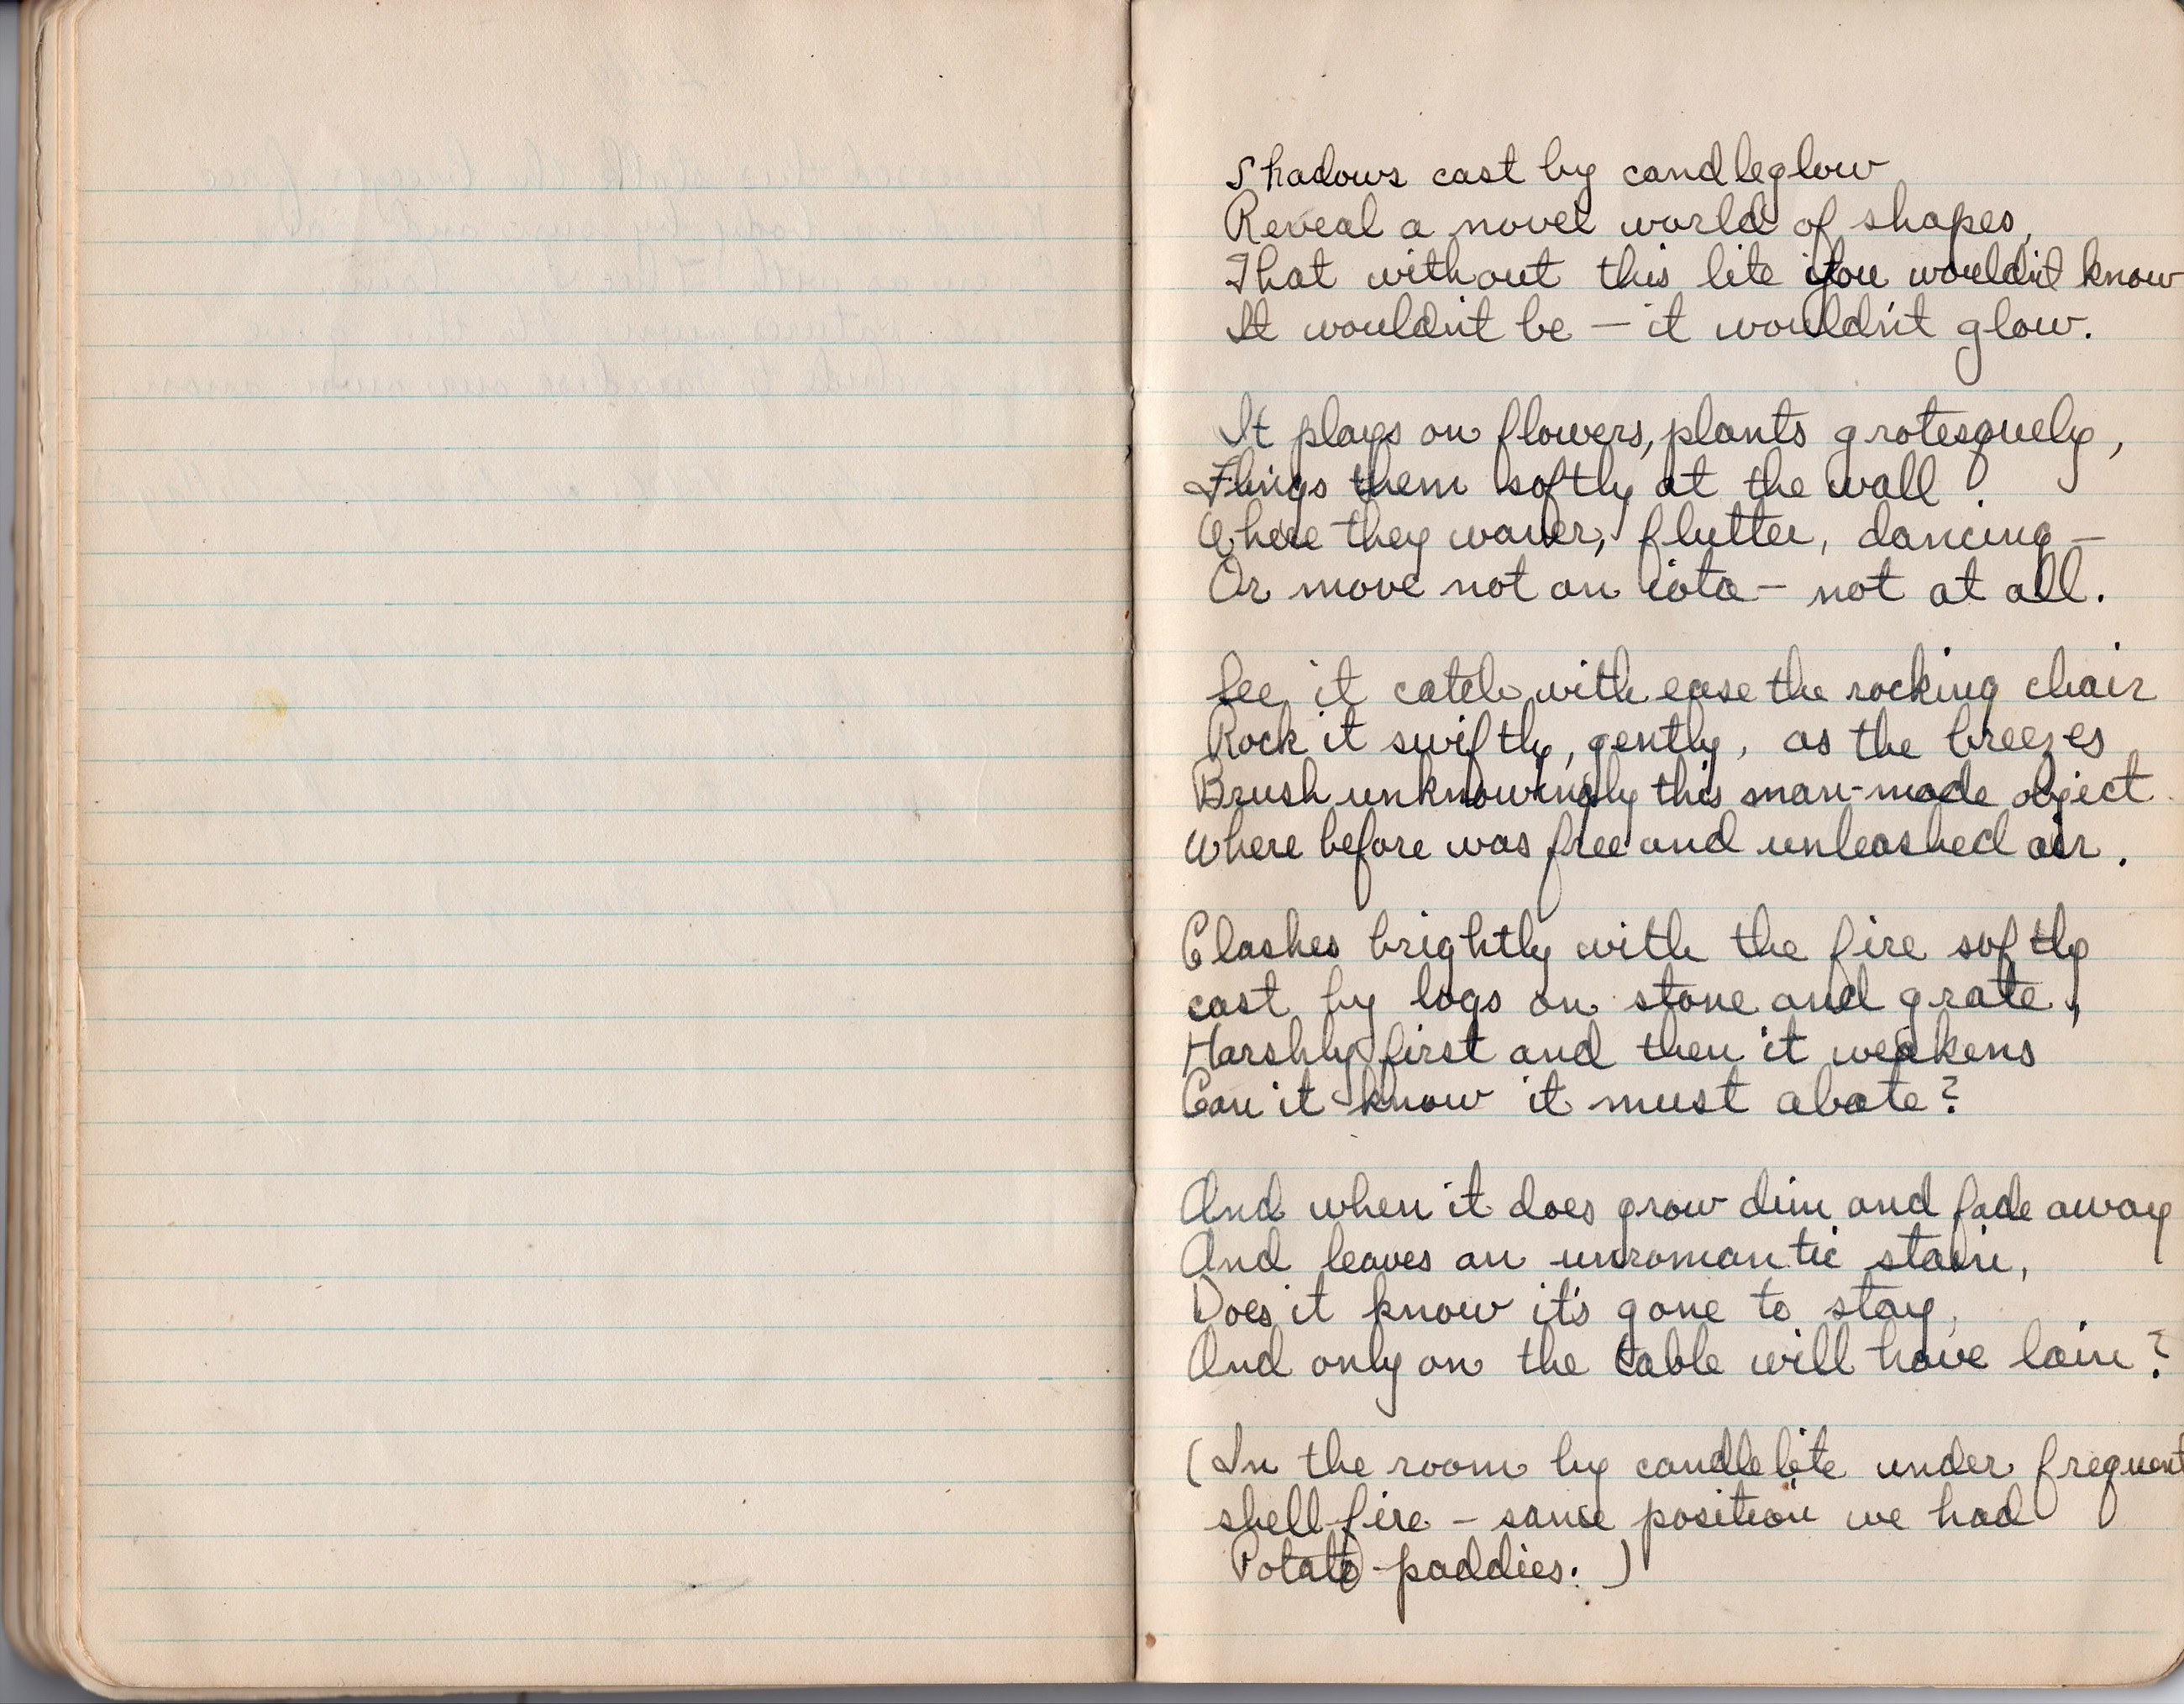 Shadows cast by candleglow
Reveal a novel world of shapes,
That without this lite you wouldn't know
It wouldn't be — it wouldn't glow.
It plays on flowers, plants grotesquely,
Flings them softly at the wall
Where they waver, flutter, dancing —
Or move not an iota — not at all.
See it catch with ease the rocking chair
Rock it swiftly, gently, as the breezes
Brush unknowingly this man-made object
Where before was free and unleashed air.
Clashes brightly with the fire softly
cast by logs on stone and grate,
Harshly first and then it weakens
Can it know it must abate?
And when it does grow dim and fade away
And leaves an unromantic stain,
Does it know it's gone to stay,
And only on the table will have lain?
(In the room by candlelite under frequent
shell-fire — same position we had
Potato-paddies.)